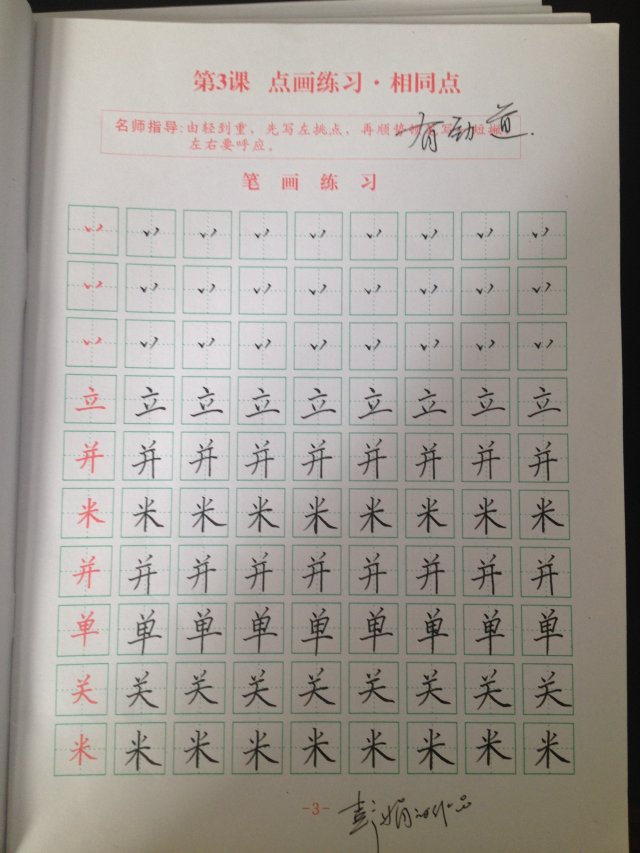 第3课 点画练习·相同点
名师指导:由轻到重，先写左挑点，再顺势写短撇
有劲道.
左右要呼应。
笔画练习
丷 丷 丷 丷 丷 丷 丷 丷 丷
丷 丷 丷 丷 丷 丷 丷 丷 丷
丷 丷 丷 丷 丷 丷 丷 丷 丷
立 立 立 立 立 立 立 立 立
并 并 并 并 并 并 并 并 并
米 米 米 米 米 米 米 米 米
并 并 并 并 并 并 并 并 并
单 单 单 单 单 单 单 单 单
关 关 关 关 关 关 关 关 关
米 米 米 米 米 米 米 米 米
-3- 彭娟的作品